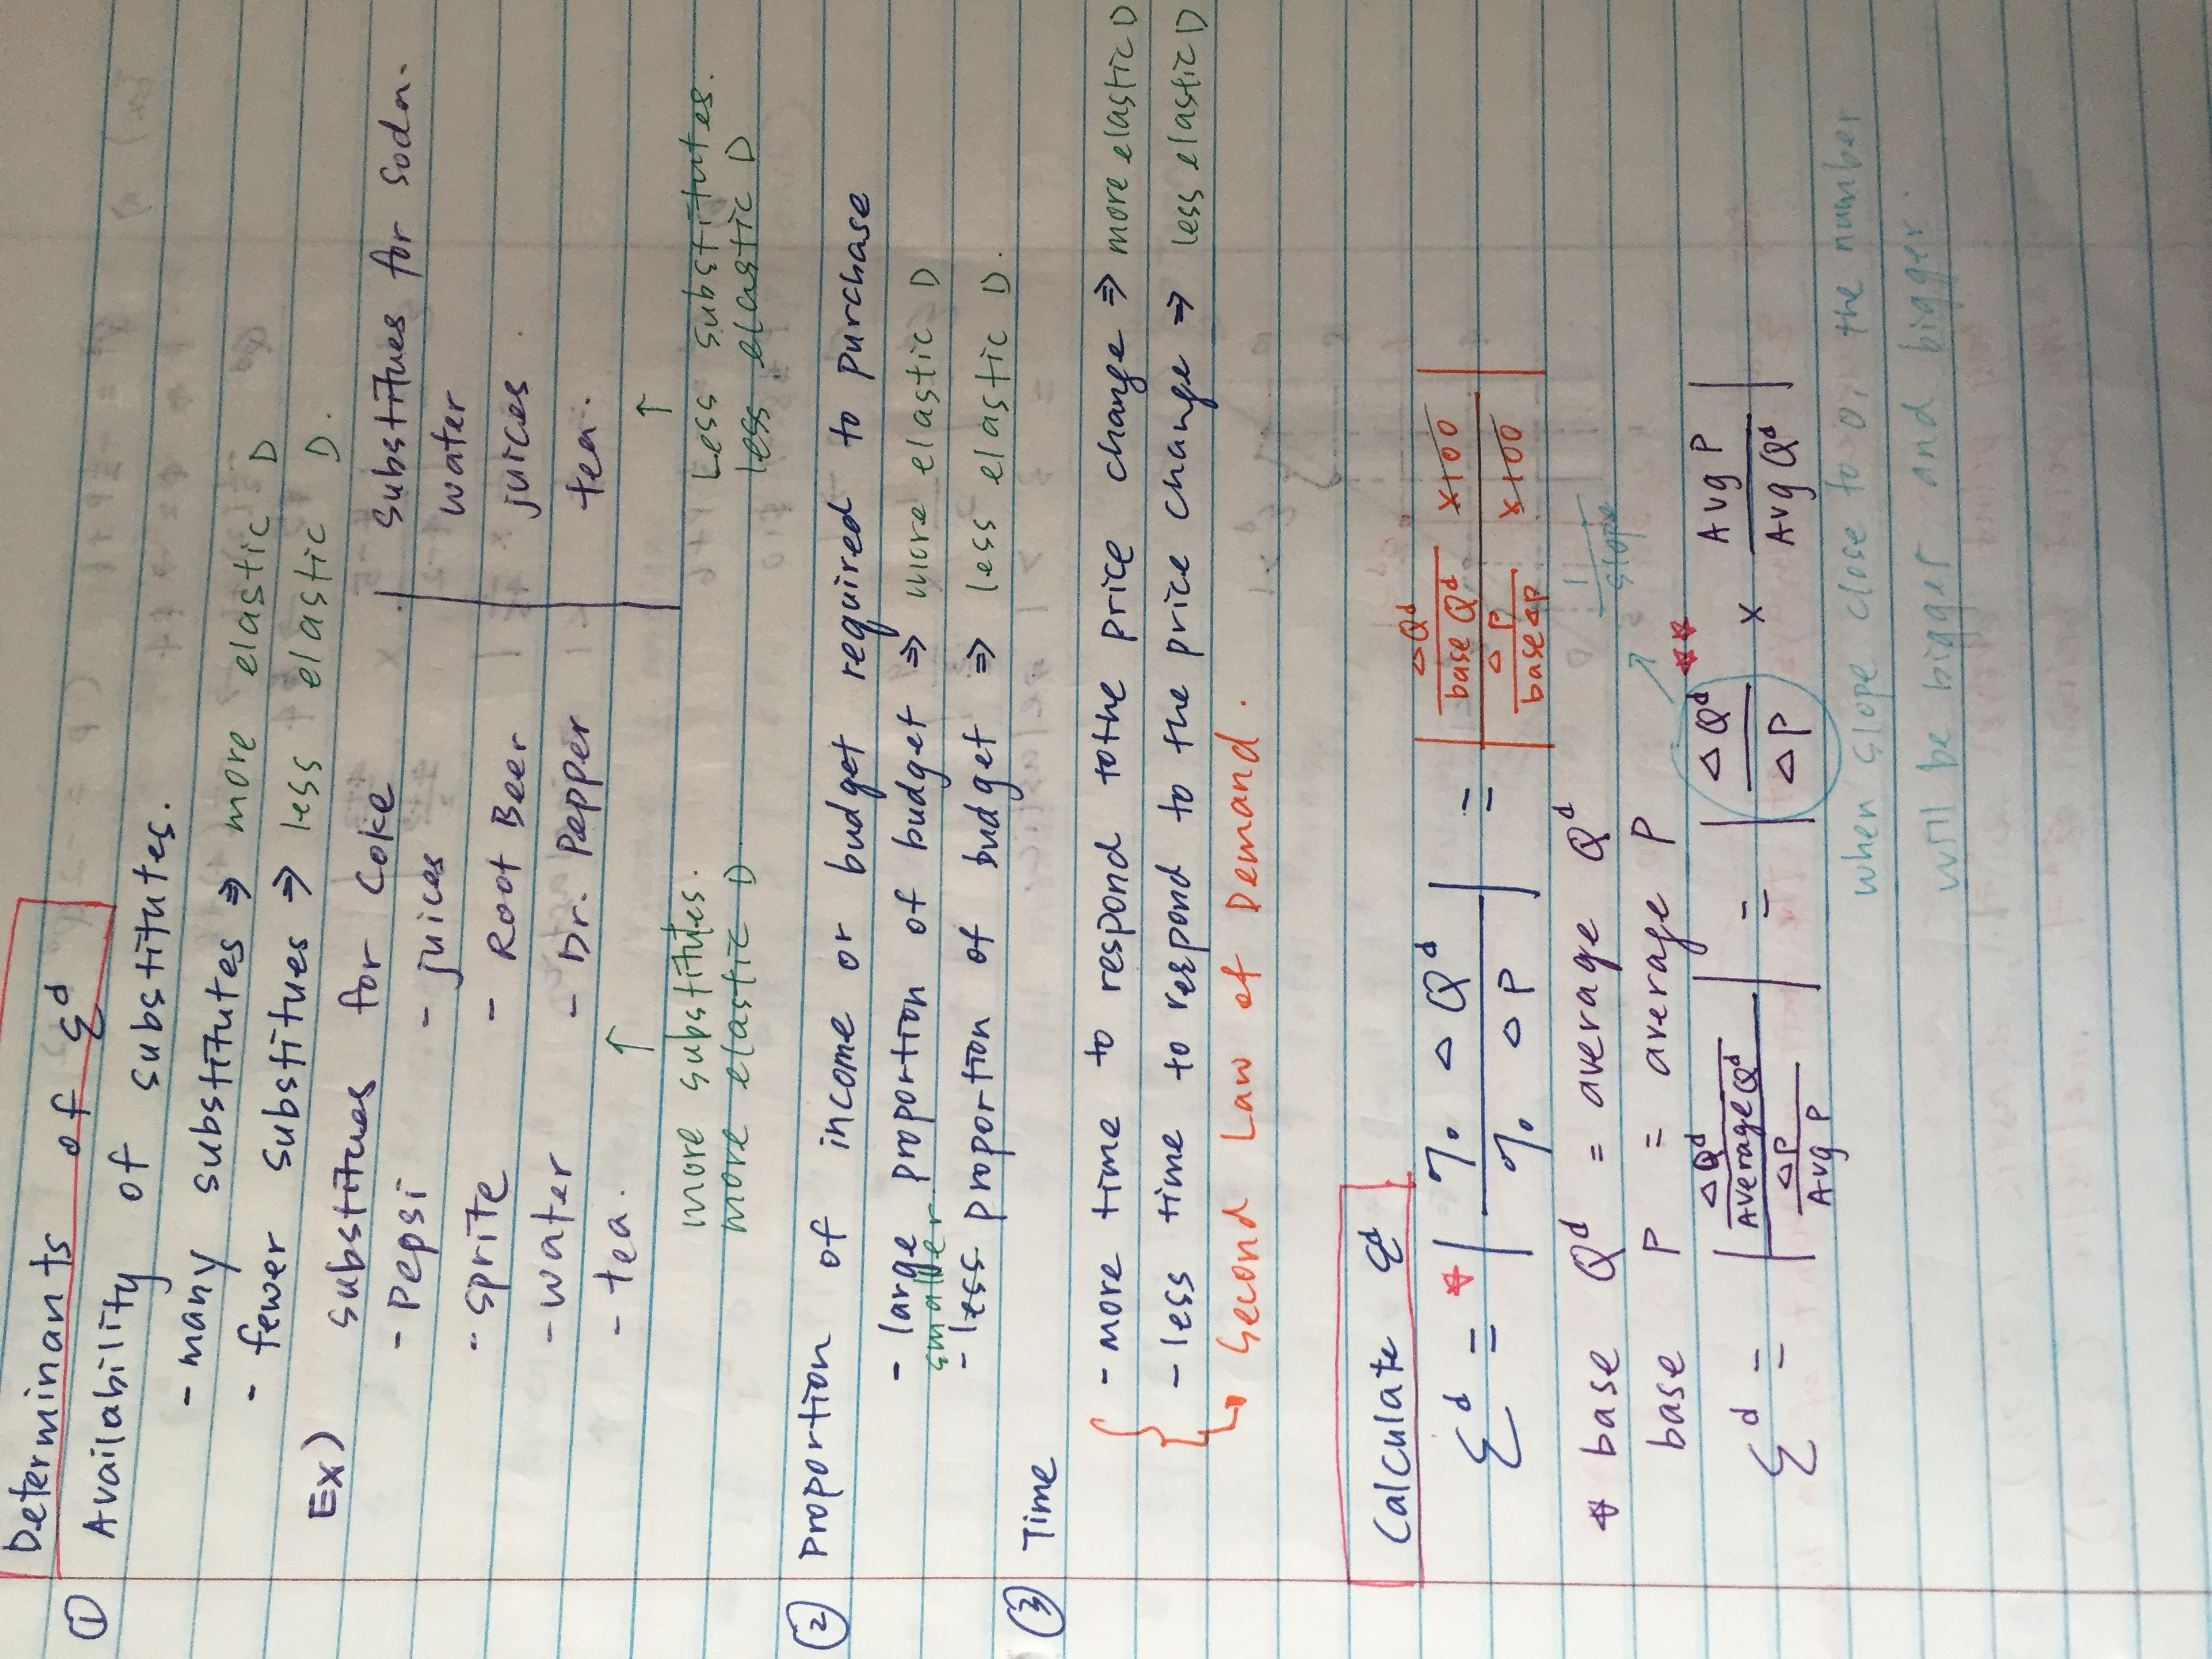 Determinants of Ed
① Availability of substitutes.
- many substitutes ⇒ more elastic D
- fewer substitues ⇒ less elastic D.
Ex) substitues for Coke | substitues for soda.
- Pepsi - juices | water
- sprite - Root Beer | juices
- water - Dr. Pepper | tea.
- tea.
↑ ↑
more substitutes. Less substitutes.
more elastic D less elastic D
② Proportion of income or budget required to purchase
- large proportion of budget ⇒ more elastic D
smaller
- less proportion of budget ⇒ less elastic D.
③ Time
- more time to respond to the price change ⇒ more elastic D
- less time to respond to the price change ⇒ less elastic D
↳ Second Law of Demand.
Calculate Ed
Ed = * | %ΔQd / %ΔP | = | (ΔQd / base Qd x100) / (ΔP / base ΔP x100) |
* base Qd = average Qd
base P = average P
1/slope
Ed = | (ΔQd / Average Qd) / (ΔP / Avg P) | = | ΔQd / ΔP ** x Avg P / Avg Qd |
when slope close to 0, the number
will be bigger and bigger.